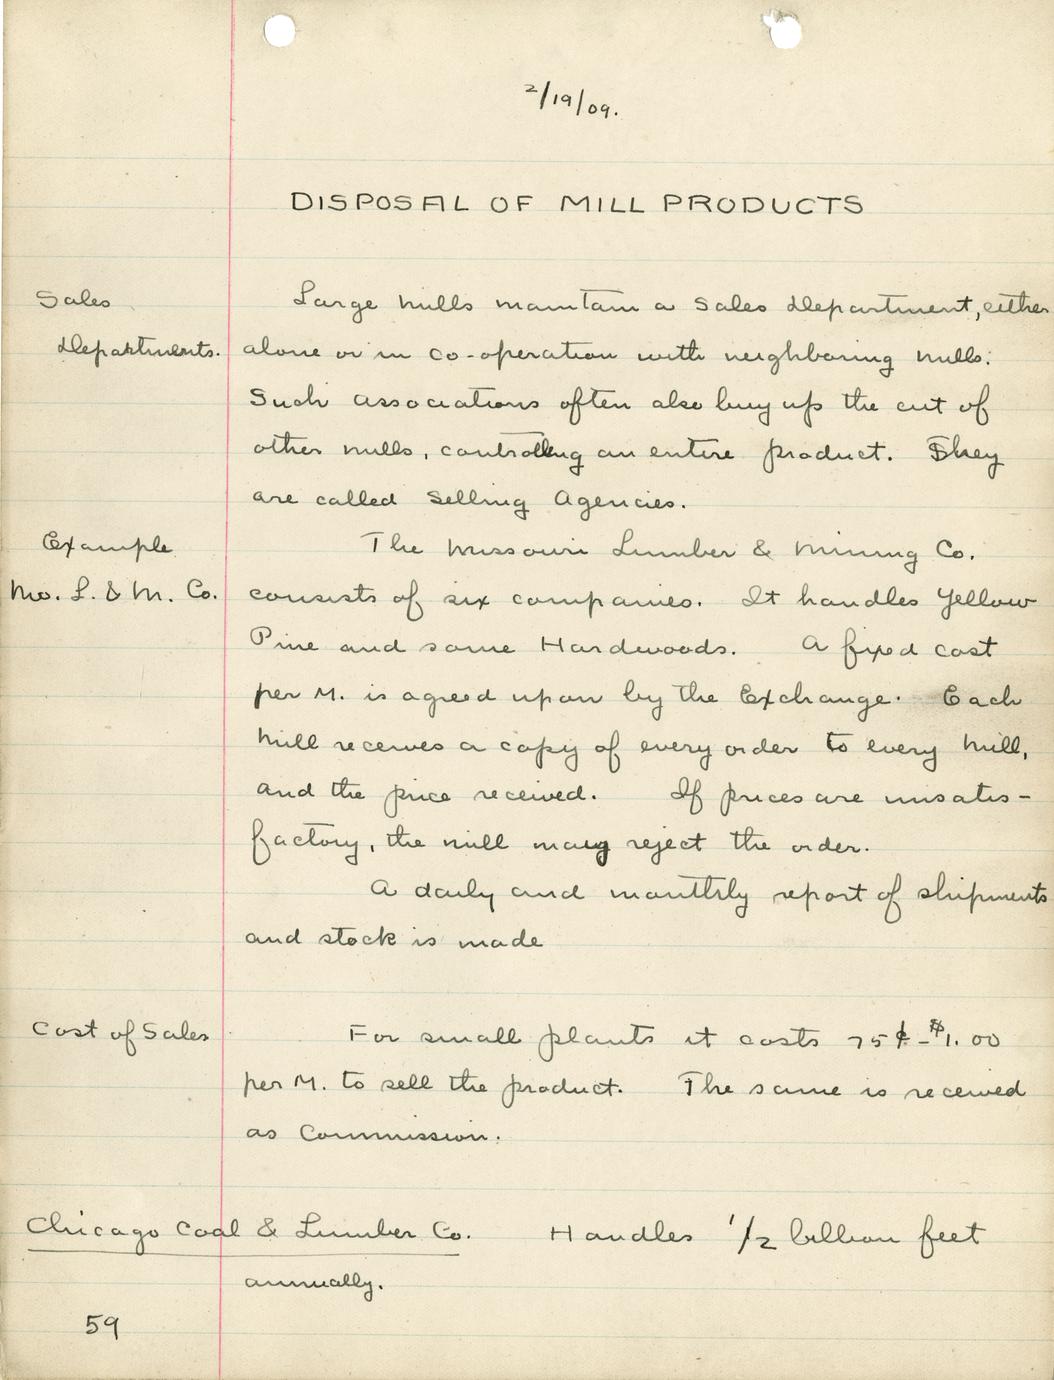 2/19/09.
DISPOSAL OF MILL PRODUCTS
Sales Large mills maintain a Sales Department, either
Departments. alone or in co-operation with neighboring mills.
Such associations often also buy up the cut of
other mills, controlling an entire product. They
are called Selling Agencies.
Example The Missouri Lumber & Mining Co.
Mo. L. & M. Co. consists of six companies. It handles Yellow
Pine and some Hardwoods. A fixed cost
per M. is agreed upon by the Exchange. Each
mill receives a copy of every order to every mill,
and the price received. If prices are unsatis-
factory, the mill may reject the order.
A daily and monthly report of shipments
and stock is made
Cost of Sales For small plants it costs 75¢-$1.00
per M. to sell the product. The same is received
as Commission.
Chicago Coal & Lumber Co. Handles 1/2 billion feet
annually.
59